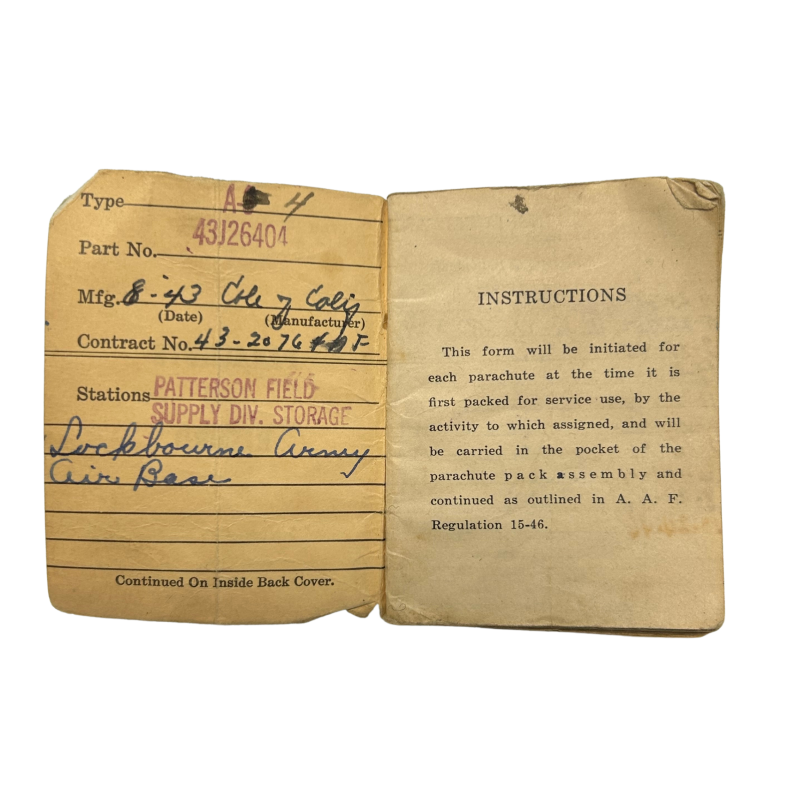 Type A- 4
Part No. 43J26404
Mfg. 8-43 Cole of Calif
(Date) (Manufacturer)
Contract No. 43-2076
Stations PATTERSON FIELD
SUPPLY DIV. STORAGE
Lockbourne Army
Air Base
Continued On Inside Back Cover.
INSTRUCTIONS
This form will be initiated for
each parachute at the time it is
first packed for service use, by the
activity to which assigned, and will
be carried in the pocket of the
parachute pack assembly and
continued as outlined in A. A. F.
Regulation 15-46.